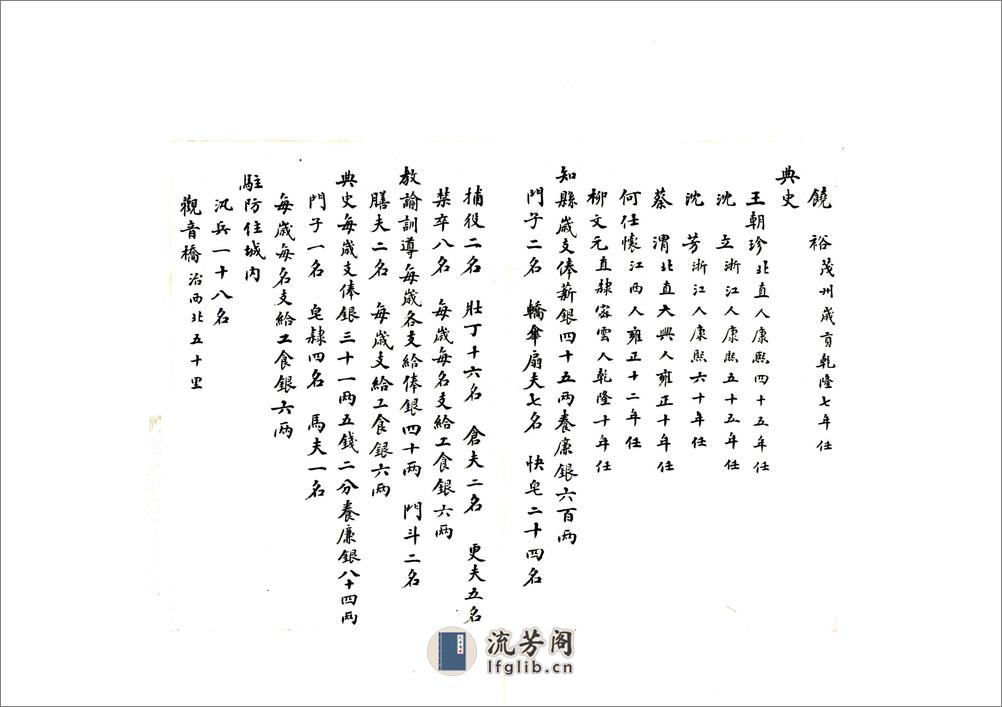 饒　裕茂州歲貢乾隆七年任
典史
王朝珍北直人康熙四十五年任
沈　立浙江人康熙五十五年任
沈　芳浙江人康熙六十年任
蔡　渭北直大興人雍正十年任
何仕懷江西人雍正十二年任
柳文元直隸密雲人乾隆十年任
知縣歲支俸薪銀四十五兩養廉銀六百兩
門子二名　轎傘扇夫七名　快皂二十四名
捕役二名　壯丁十六名　倉夫二名　更夫五名
禁卒八名　每歲每名支給工食銀六兩
教諭訓導每歲各支給俸銀四十兩　門斗二名
膳夫二名　每歲支給工食銀六兩
典史每歲支俸銀三十一兩五錢二分養廉銀八十四兩
門子一名　皂隸四名　馬夫一名
每歲每名支給工食銀六兩
駐防住城內
汛兵一十八名
觀音橋治西北五十里
流芳阁
lfglib.cn